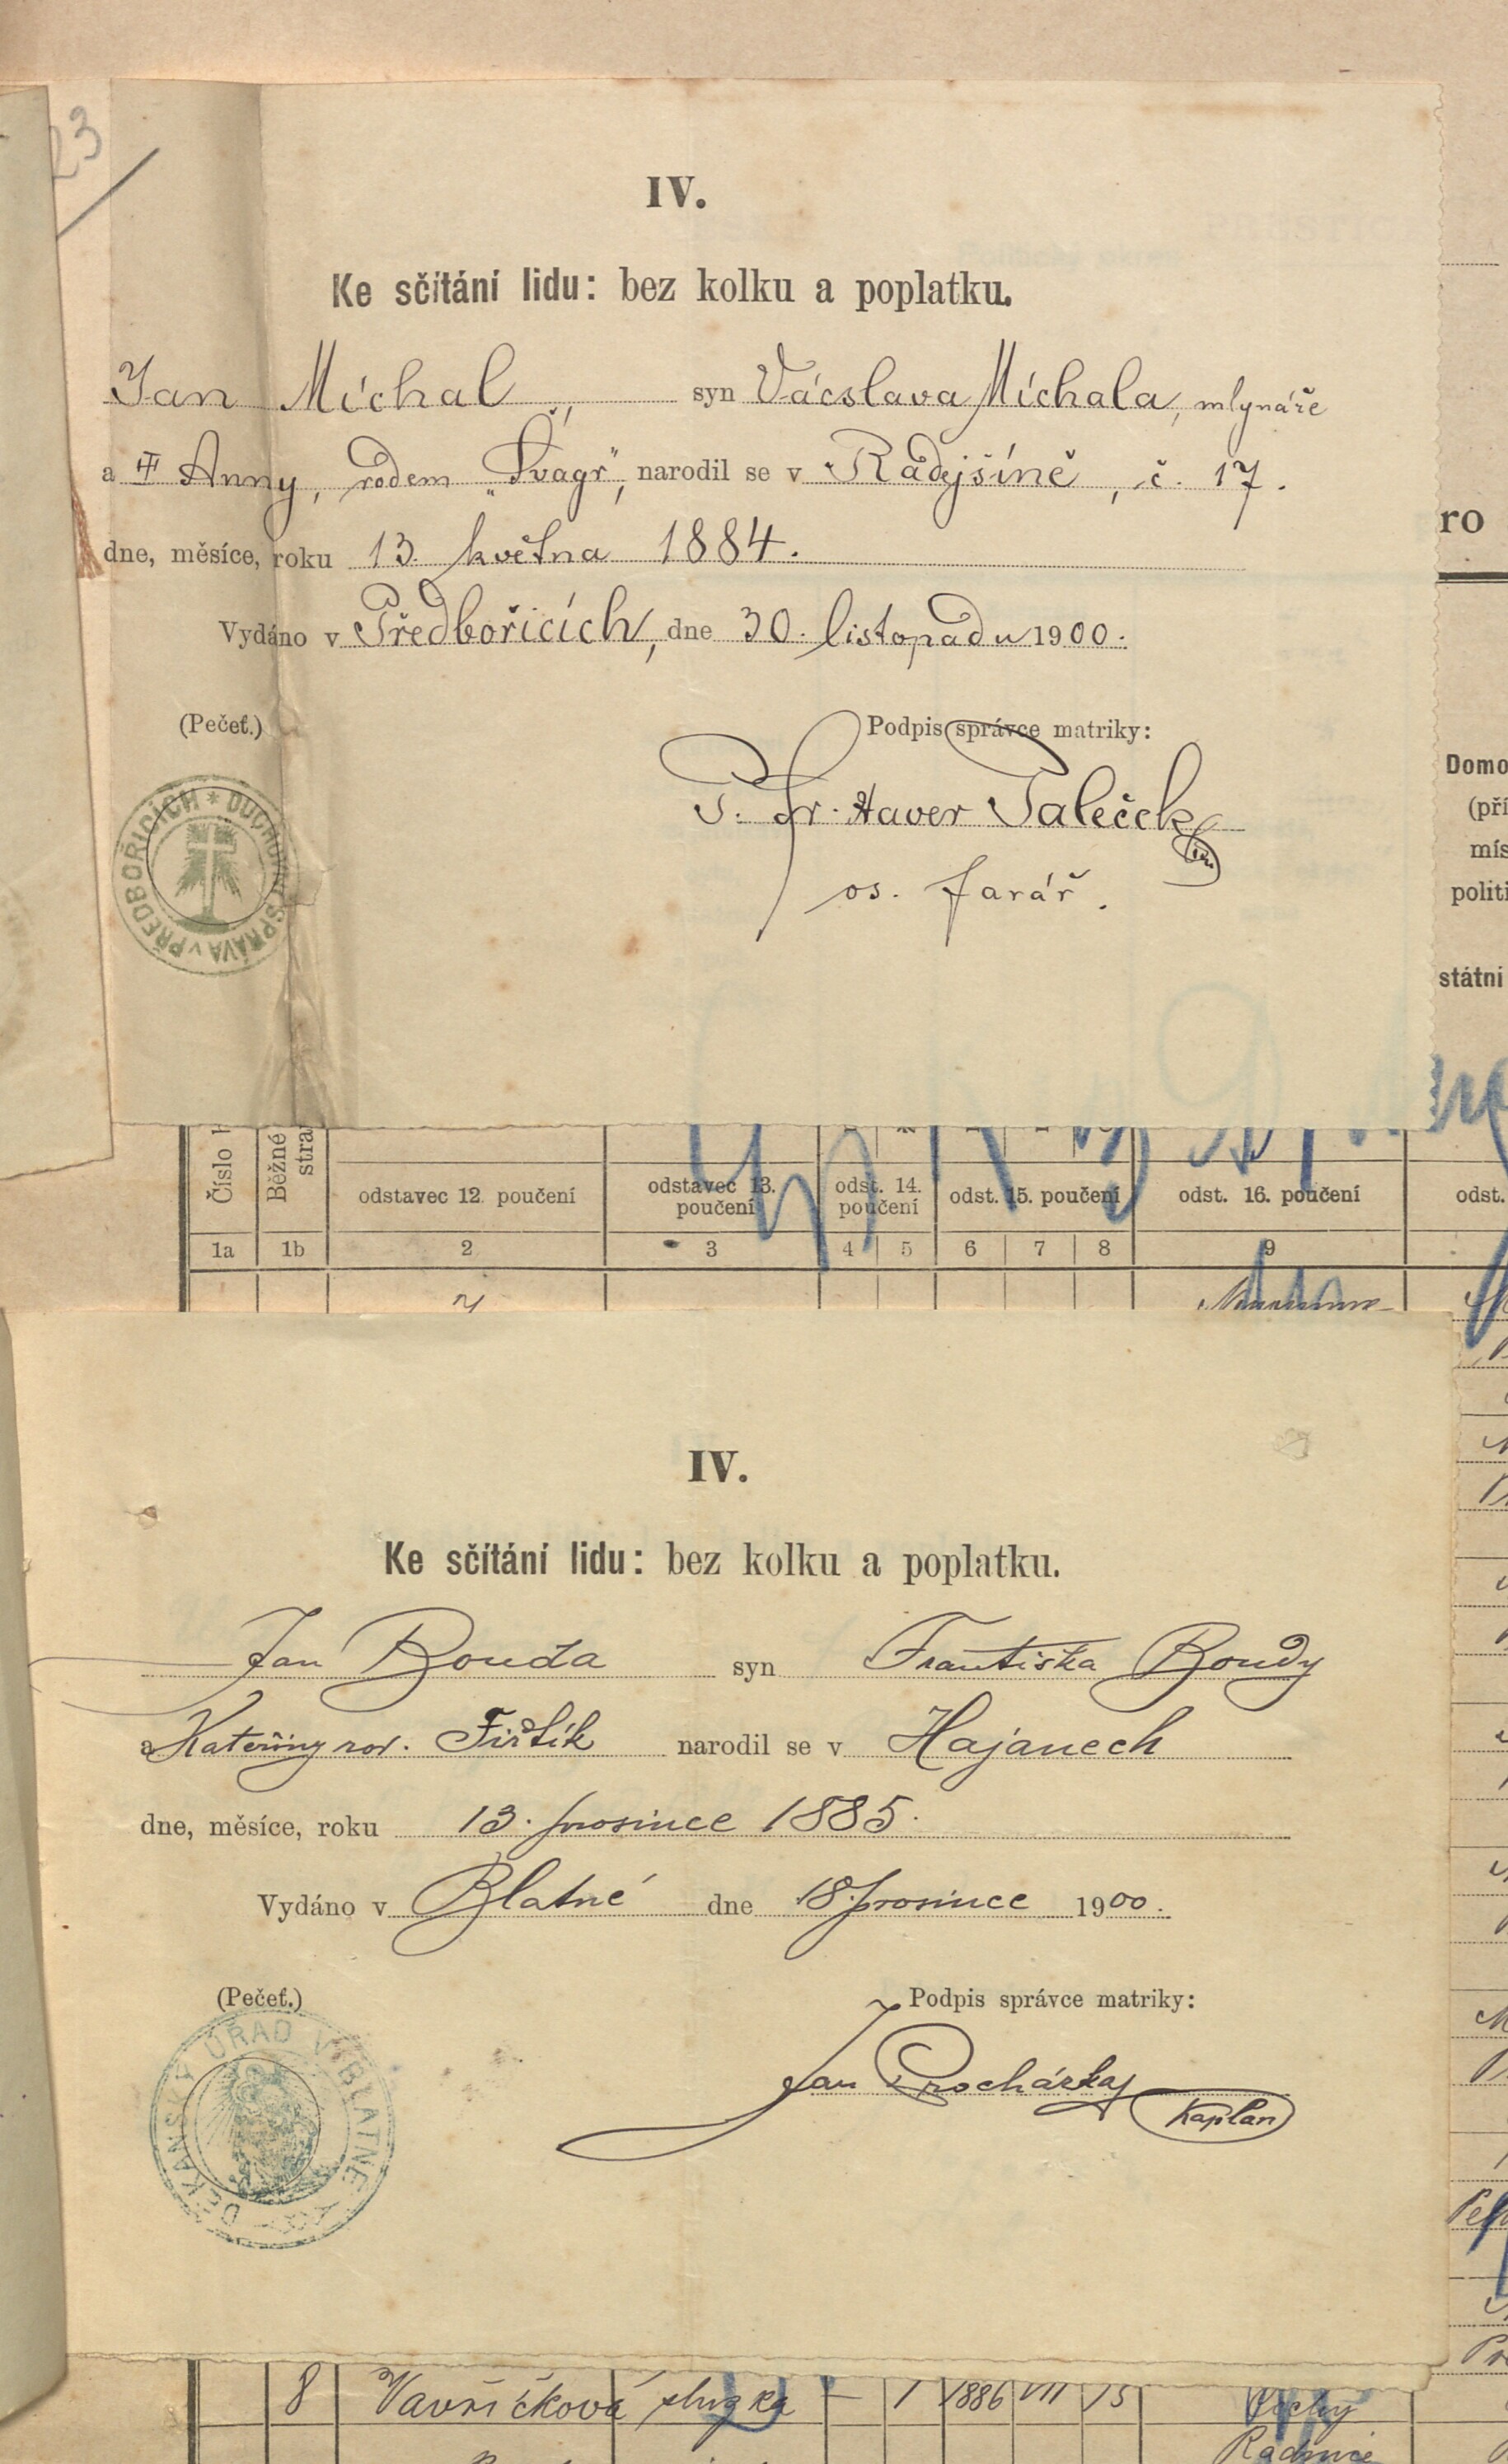 23
IV.
Ke sčítání lidu: bez kolku a poplatku.
Jan Míchal, syn Vácslava Míchala, mlynáře
a Anny, rodem „Švagr“, narodil se v Radejšíně, č. 17.
dne, měsíce, roku 13. května 1884.
Vydáno v Předbořicích, dne 30. listopadu 1900.
(Pečeť.) Podpis správce matriky:
DUCHOVNÍ SPRÁVA v PŘEDBOŘICÍCH *
P. Fr. Xaver Paleček
os. farář.
ro
Domo
(pří
mís
politi
státni
Číslo
Běžné
stra
odstavec 12. poučení odstavec 13. poučení odst. 14. poučení odst. 15. poučení odst. 16. poučení odst.
1a 1b 2 3 4 5 6 7 8 9
IV.
Ke sčítání lidu: bez kolku a poplatku.
Jan Bouda syn Františka Boudy
a Kateřiny roz. Fiřtík narodil se v Hajanech
dne, měsíce, roku 13. prosince 1885.
Vydáno v Blatné dne 18. prosince 1900.
(Pečeť.) Podpis správce matriky:
DĚKANSKÝ ÚŘAD V BLATNÉ
Jan Procházka
Kaplan
8 Vavřičková služka — 1 1886 VII 15
Radnice